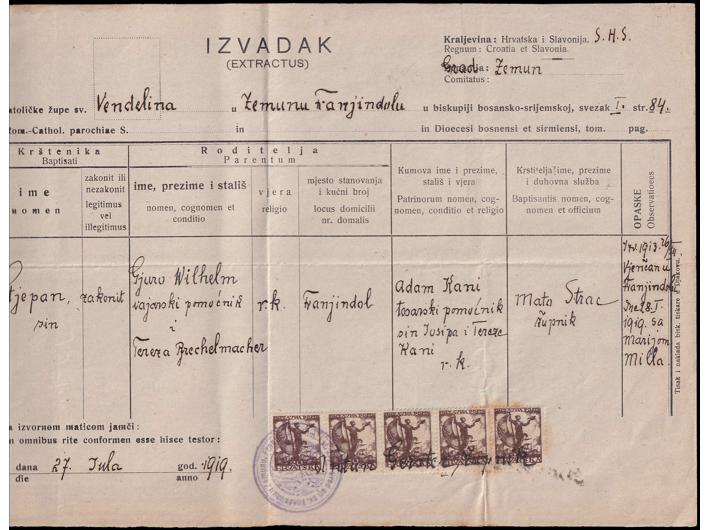 IZVADAK
(EXTRACTUS)
Kraljevina: Hrvatska i Slavonija. S.H.S.
Regnum: Croatia et Slavonia.
Grad Zemun
Comitatus:
atoličke župe sv. Vendelina u Zemunu Franjindolu u biskupiji bosansko-srijemskoj, svezak I. str. 84.
Rom.-Cathol. parochiae S. in in Dioecesi bosnensi et sirmiensi, tom. pag.
Krštenika
Baptisati
Roditelja
Parentum
ime
nomen
zakonit ili
nezakonit
legitimus
vel
illegitimus
ime, prezime i stališ
nomen, cognomen et
conditio
vjera
religio
mjesto stanovanja
i kućni broj
locus domicilii
nr. domalis
Kumova ime i prezime,
stališ i vjera
Patrinorum nomen, cog-
nomen, conditio et religio
Krstitelja ime, prezime
i duhovna služba
Baptisantis nomen, cog-
nomen et officium
OPASKE
Observationes
Stjepan,
sin
zakonit
Gjuro Wilhelm
pomoćnik
i
Tereza Brechelmacher
r.k.
Franjindol
Adam Kani
tesarski pomoćnik
sin Josipa i Tereze
Kani
r. k.
Mato Strac
župnik
1913.
Vjenčan u
Franjindolu
dne 28. I.
1919. sa
Marijom
Milla.
Tisak i naklada bisk. tiskare u Djakovu.
a izvornom maticom jamči:
m omnibus rite conformem esse hisce testor:
dana 27. Jula god. 1919.
die anno
župnik